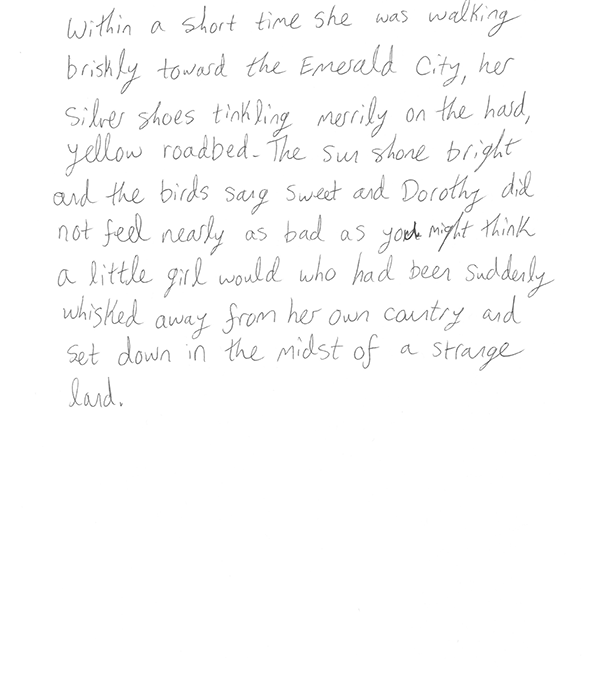 Within a short time she was walking
briskly toward the Emerald City, her
Silver shoes tinkling merrily on the hard,
yellow roadbed. The sun shone bright
and the birds sang sweet and Dorothy did
not feel nearly as bad as you might think
a little girl would who had been suddenly
whisked away from her own country and
set down in the midst of a strange
land.